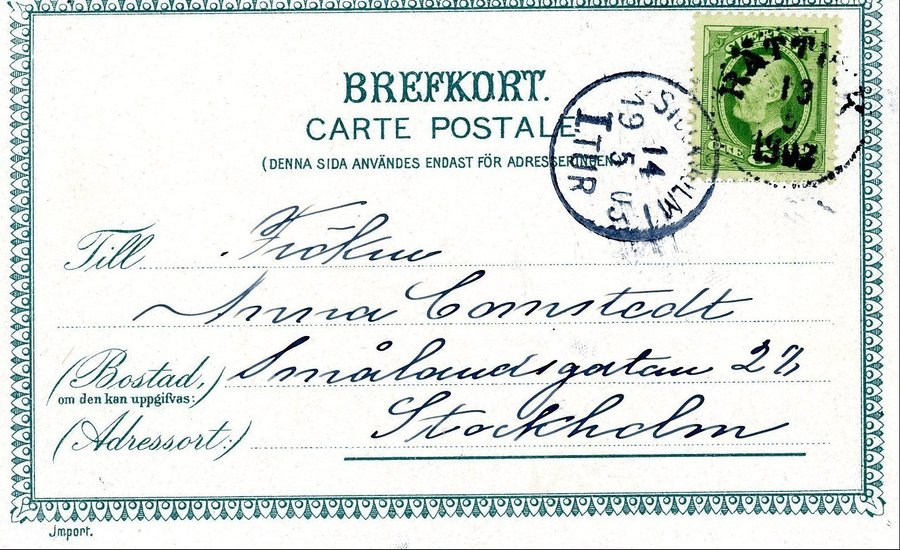 BREFKORT.
CARTE POSTALE
(DENNA SIDA ANVÄNDES ENDAST FÖR ADRESSERINGEN)
STOCKHOLM 1
19 14 5 03
1. TUR
RÄTTVIK
13
5
1903
Till Fröken
Anna Comstedt
(Bostad,) Smålandsgatan
om den kan uppgifvas:
(Adressort:) Stockholm
Import.